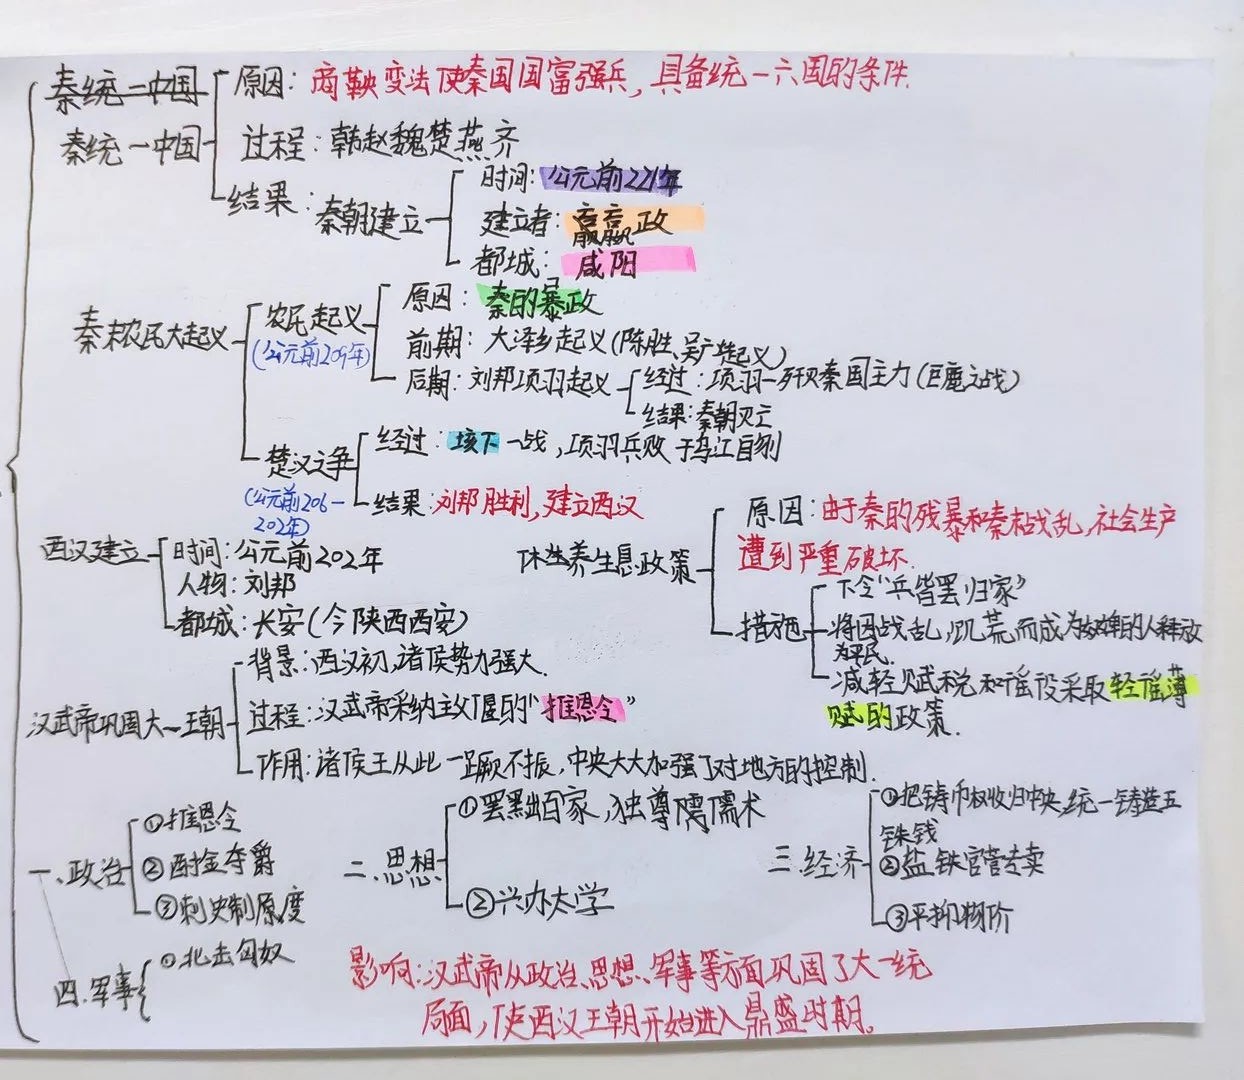 秦统一中国
原因：商鞅变法使秦国国富强兵，具备统一六国的条件.
秦统一中国
过程：韩赵魏楚燕齐
结果：秦朝建立
时间：公元前221年
建立者：嬴政
都城：咸阳
秦末农民大起义
农民起义
(公元前209年)
原因：秦的暴政
前期：大泽乡起义(陈胜、吴广起义)
后期：刘邦项羽起义
经过：项羽一歼灭秦国主力(巨鹿之战)
结果：秦朝灭亡
楚汉之争
(公元前206-
202年)
经过：垓下一战，项羽兵败于乌江自刎
结果：刘邦胜利，建立西汉
西汉建立
时间：公元前202年
人物：刘邦
都城：长安(今陕西西安)
休生养生息政策
原因：由于秦的残暴和秦末战乱，社会生产
遭到严重破坏.
措施
下令“兵皆罢归家”
将因战乱，饥荒而成为奴婢的人释放
为平民.
减轻赋税和徭役采取轻徭薄
赋的政策.
汉武帝巩固大一王朝
背景：西汉初，诸侯势力强大.
过程：汉武帝采纳主父偃的“推恩令”
作用：诸侯王从此一蹶不振，中央大大加强了对地方的控制.
一、政治
①推恩令
②酎金夺爵
③刺史制度
二.思想
①罢黜百家，独尊儒术
②兴办太学
三.经济
①把铸币权收归中央，统一铸造五
铢钱
②盐铁官营专卖
③平抑物价
四.军事
①北击匈奴
影响：汉武帝从政治、思想、军事等方面巩固了大一统
局面，使西汉王朝开始进入鼎盛时期。